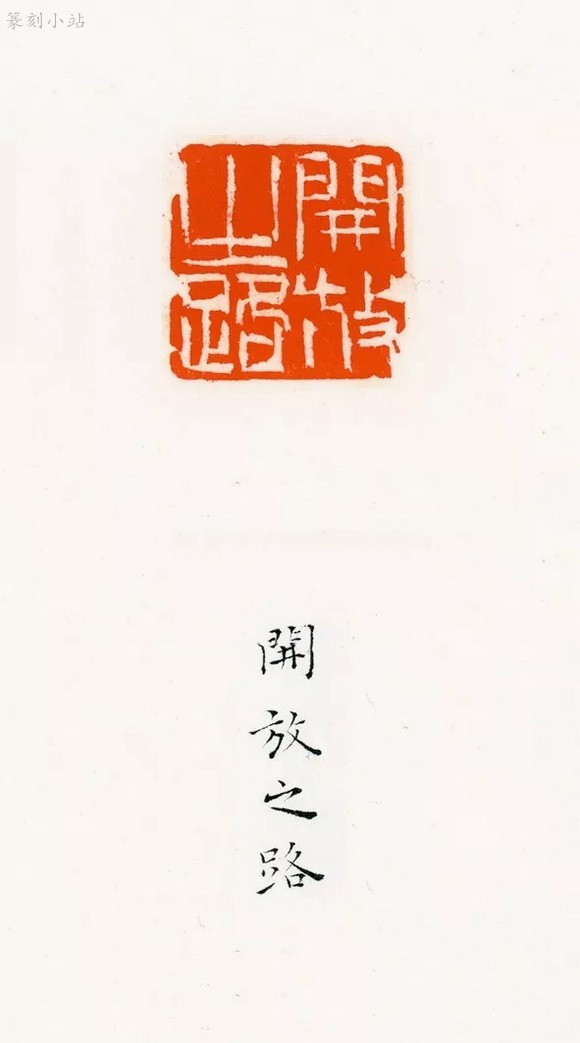 篆刻小站
開放
之路
開放之路